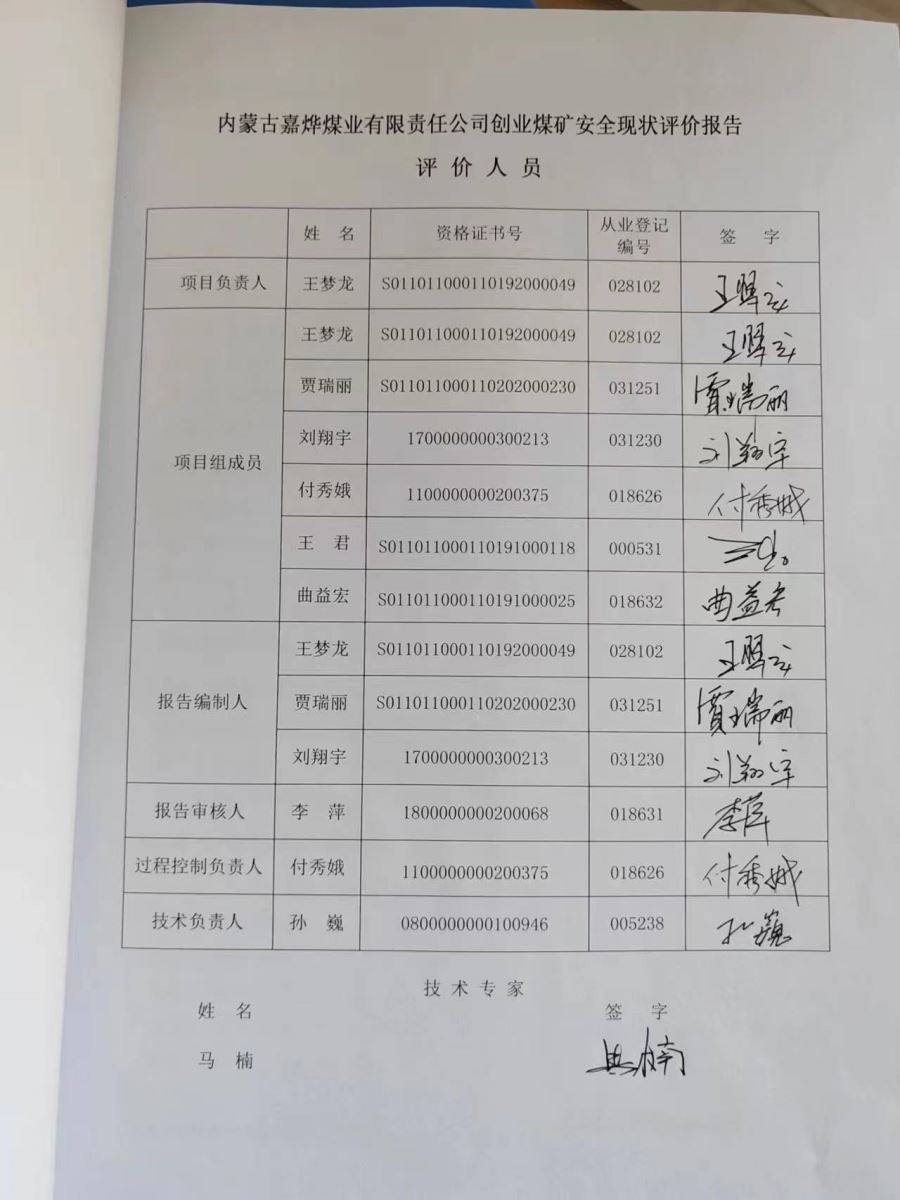 内蒙古嘉烨煤业有限责任公司创业煤矿安全现状评价报告
评价人员
姓 名 资格证书号 从业登记编号 签 字
项目负责人 王梦龙 S011011000110192000049 028102
项目组成员 王梦龙 S011011000110192000049 028102
贾瑞丽 S011011000110202000230 031251 贾瑞丽
刘翔宇 1700000000300213 031230 刘翔宇
付秀娥 1100000000200375 018626 付秀娥
王 君 S011011000110191000118 000531
曲益宏 S011011000110191000025 018632 曲益宏
报告编制人 王梦龙 S011011000110192000049 028102
贾瑞丽 S011011000110202000230 031251 贾瑞丽
刘翔宇 1700000000300213 031230 刘翔宇
报告审核人 李 萍 1800000000200068 018631 李萍
过程控制负责人 付秀娥 1100000000200375 018626 付秀娥
技术负责人 孙 巍 0800000000100946 005238 孙巍
技术专家
姓 名 签 字
马 楠 马楠